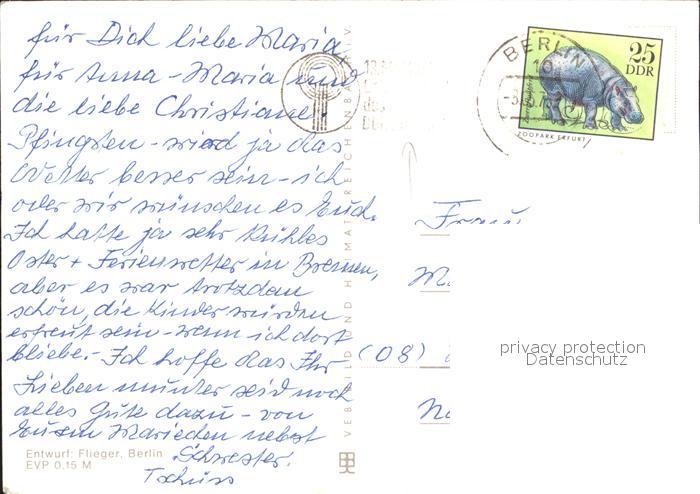 für Dich liebe Maria,
für Anna-Maria und
die liebe Christiane.
Pfingsten - wird ja das
Wetter besser sein - ich
oder wir wünschen es Euch.
Ich hatte ja sehr kühles
Oster + Ferienwetter in Bremen,
aber es war trotzdem
schön, die Kinder würden
erfreut sein - wenn ich dort
bliebe. - Ich hoffe das Ihr
Lieben munter seid noch
alles Gute dazu - von
Eurem Mariechen nebst
Schwester.
Tschüss
Entwurf: Flieger, Berlin
EVP 0,15 M
VEB BILD UND HEIMAT REICHENBACH I. V.
BERLIN
10
25
DDR
ZOOPARK ERFURT
Frau
(08)
privacy protection
Datenschutz